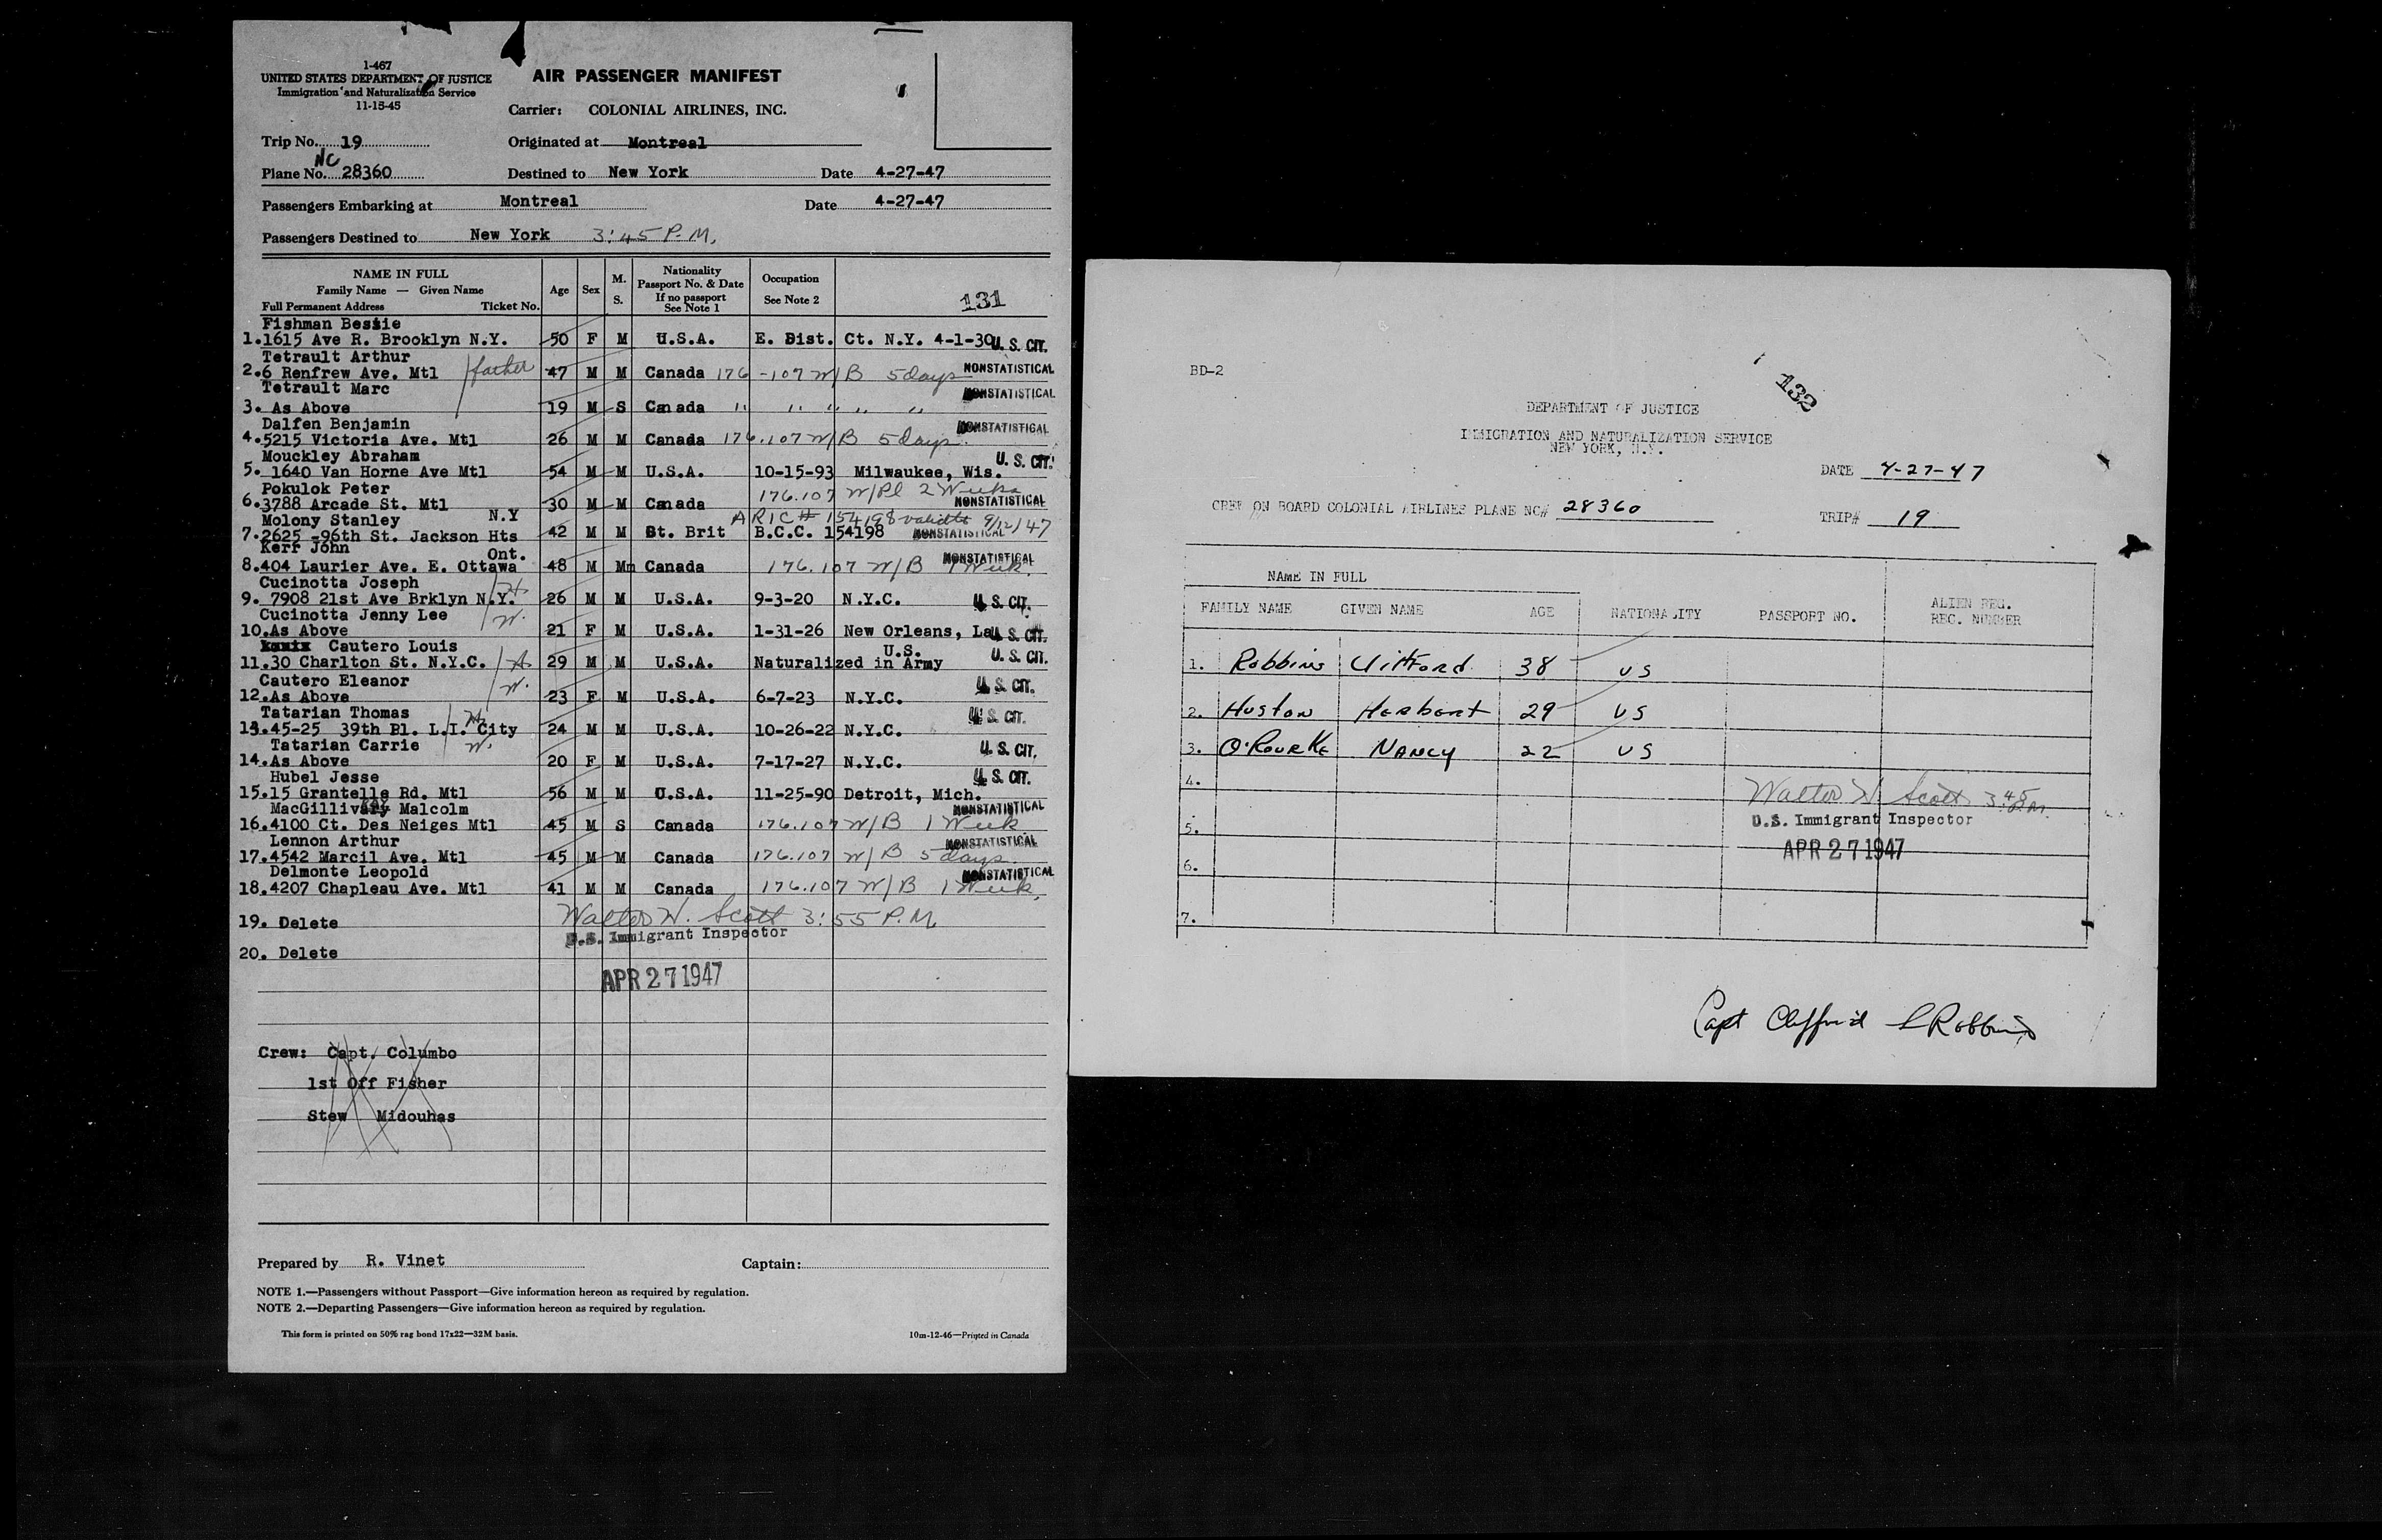 1-467
UNITED STATES DEPARTMENT OF JUSTICE
Immigration and Naturalization Service
11-15-45
AIR PASSENGER MANIFEST
Carrier: COLONIAL AIRLINES, INC.
Trip No. 19
Originated at Montreal
NC
Plane No. 28360
Destined to New York Date 4-27-47
Passengers Embarking at Montreal Date 4-27-47
Passengers Destined to New York 3:45 P.M.
NAME IN FULL
Family Name — Given Name
Full Permanent Address Ticket No.
Age
Sex
M.
S.
Nationality
Passport No. & Date
If no passport
See Note 1
Occupation
See Note 2
131
Fishman Bessie
1. 1615 Ave R. Brooklyn N.Y. 50 F M U.S.A. E. Dist. Ct. N.Y. 4-1-30 U. S. CIT.
Tetrault Arthur
2. 6 Renfrew Ave. Mtl father 47 M M Canada 176-107 W/B 5 days NONSTATISTICAL
Tetrault Marc
3. As Above 19 M S Canada " " " " " NONSTATISTICAL
Dalfen Benjamin
4. 5215 Victoria Ave. Mtl 26 M M Canada 176.107 W/B 5 days. NONSTATISTICAL
Mouckley Abraham
5. 1640 Van Horne Ave Mtl 54 M M U.S.A. 10-15-93 Milwaukee, Wis. U. S. CIT.
Pokulok Peter
6. 3788 Arcade St. Mtl 30 M M Canada 176.107 W/Pl 2 Weeks NONSTATISTICAL
Molony Stanley N.Y
7. 2625 -96th St. Jackson Hts 42 M M Bt. Brit B.C.C. 154198 NONSTATISTICAL
ARIC# 154198 valid to 9/12/47
Kerr John Ont.
8. 404 Laurier Ave. E. Ottawa 48 M Mm Canada 176.107 W/B 1 Week. NONSTATISTICAL
Cucinotta Joseph
9. 7908 21st Ave Brklyn N.Y. H. 26 M M U.S.A. 9-3-20 N.Y.C. U. S. CIT.
Cucinotta Jenny Lee
10. As Above W. 21 F M U.S.A. 1-31-26 New Orleans, La. U. S. CIT.
Cautero Louis
11. 30 Charlton St. N.Y.C. H. 29 M M U.S.A. Naturalized in U.S. Army U. S. CIT.
Cautero Eleanor
12. As Above W. 23 F M U.S.A. 6-7-23 N.Y.C. U. S. CIT.
Tatarian Thomas
13. 45-25 39th Pl. L.I. City H. 24 M M U.S.A. 10-26-22 N.Y.C. U. S. CIT.
Tatarian Carrie W.
14. As Above 20 F M U.S.A. 7-17-27 N.Y.C. U. S. CIT.
Hubel Jesse
15. 15 Grantelle Rd. Mtl 56 M M U.S.A. 11-25-90 Detroit, Mich. U. S. CIT.
MacGillivray Malcolm
16. 4100 Ct. Des Neiges Mtl 45 M S Canada 176.107 W/B 1 Week NONSTATISTICAL
Lennon Arthur
17. 4542 Marcil Ave. Mtl 45 M M Canada 176.107 W/B 5 days. NONSTATISTICAL
Delmonte Leopold
18. 4207 Chapleau Ave. Mtl 41 M M Canada 176.107 W/B 1 Week. NONSTATISTICAL
19. Delete
Walter W. Scott 3:55 P.M.
U.S. Immigrant Inspector
20. Delete
APR 27 1947
Crew: Capt. Columbo
1st Off Fisher
Stew Midouhas
Prepared by R. Vinet
Captain:
NOTE 1.—Passengers without Passport—Give information hereon as required by regulation.
NOTE 2.—Departing Passengers—Give information hereon as required by regulation.
This form is printed on 50% rag bond 17x22—32M basis.
10m-12-46—Printed in Canada
BD-2
132
DEPARTMENT OF JUSTICE
IMMIGRATION AND NATURALIZATION SERVICE
NEW YORK, N.Y.
DATE 4-27-47
CREW ON BOARD COLONIAL AIRLINES PLANE NC# 28360
TRIP# 19
NAME IN FULL
FAMILY NAME GIVEN NAME AGE NATIONALITY PASSPORT NO. ALIEN REG. REC. NUMBER
1. Robbins Clifford 38 US
2. Huston Herbert 29 US
3. O'Rourke Nancy 22 US
4.
Walter W. Scott 3:45 P.M.
5.
U.S. Immigrant Inspector
APR 27 1947
6.
7.
Capt Clifford L Robbins